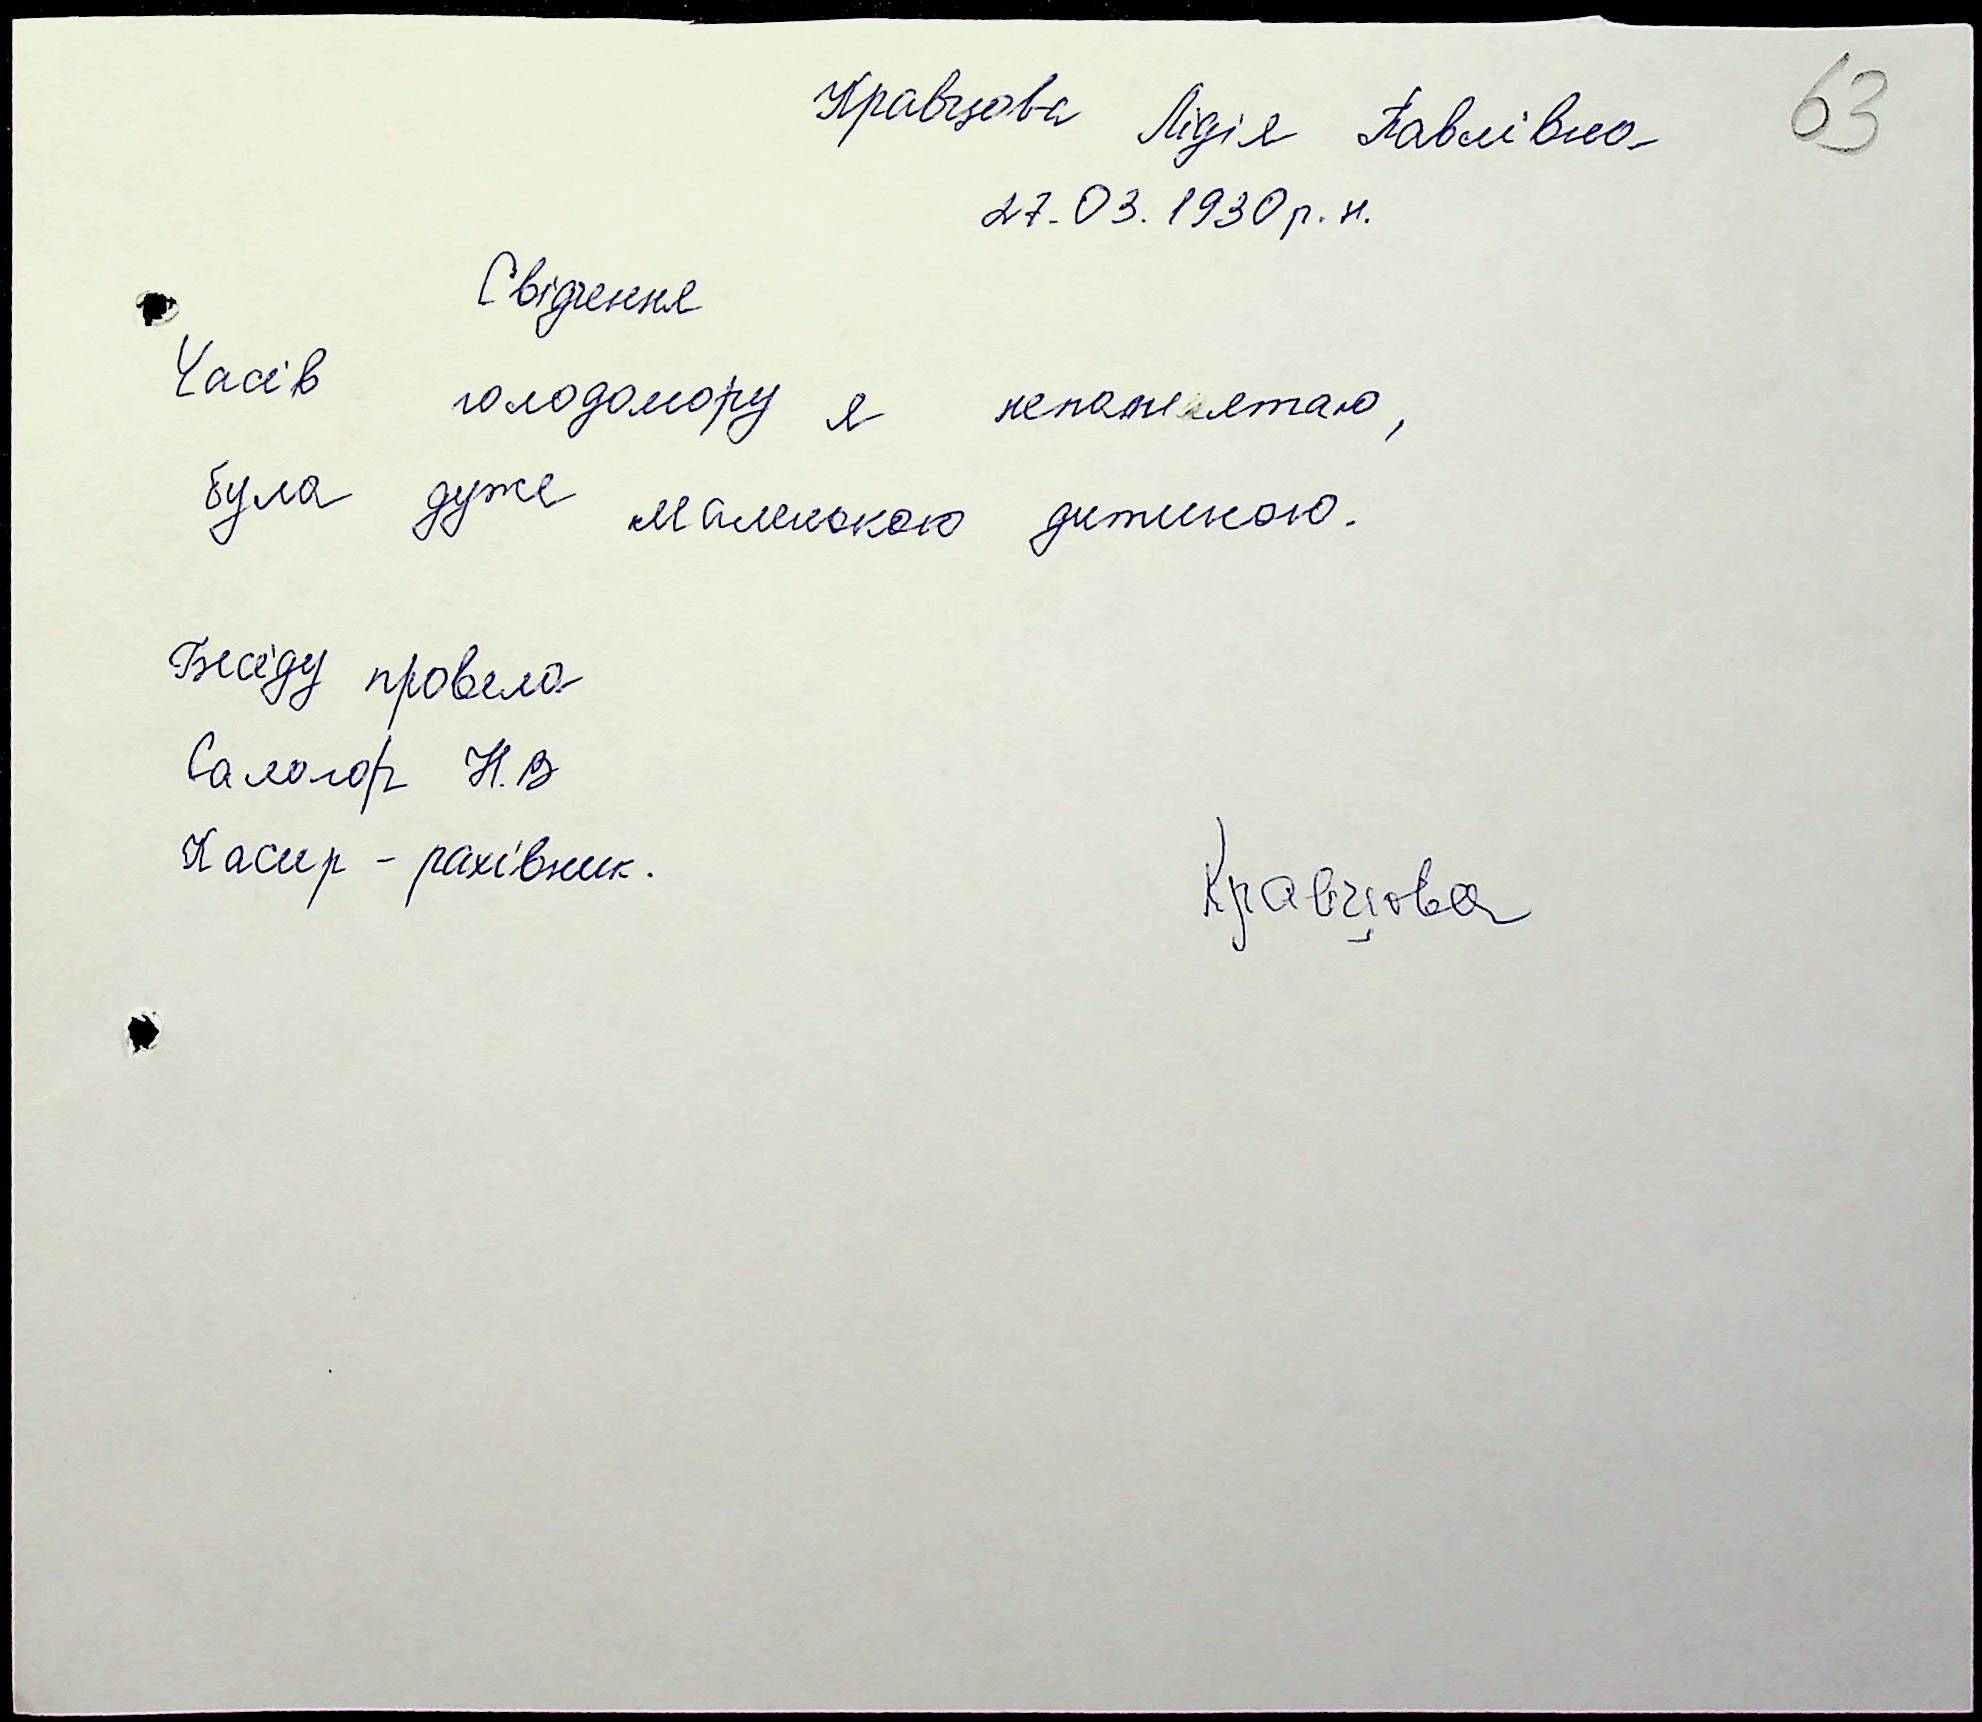 63
Кравцова Лідія Павлівна
27.03.1930 р. н.
Свідчення
Часів голодомору я непамятаю,
була дуже маленькою дитиною.
Бесіду провела
Салогор Н.В
Касир - рахівник.
Кравцова